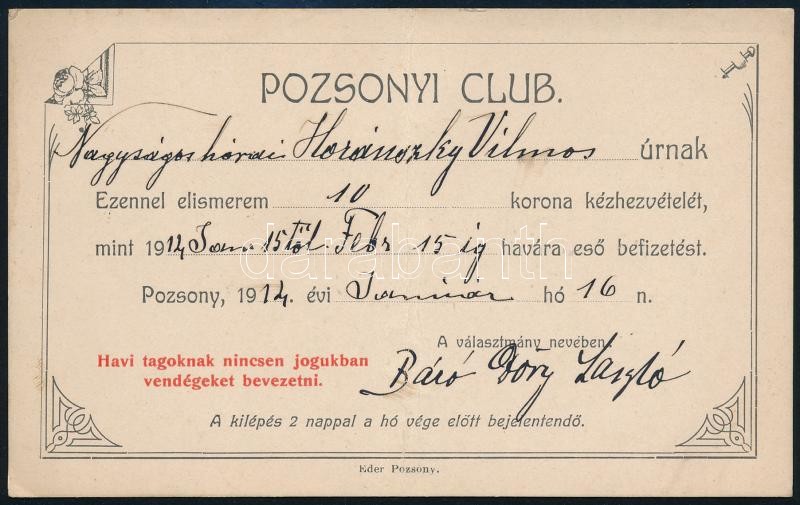 POZSONYI CLUB.
Nagyságos hórai Horánszky Vilmos úrnak
Ezennel elismerem 10 korona kézhezvételét,
mint 1914 Jan. 15től Febr 15 ig havára eső befizetést.
Pozsony, 1914. évi Január hó 16 n.
A választmány nevében:
Havi tagoknak nincsen jogukban
vendégeket bevezetni.
Báró Dőry László
A kilépés 2 nappal a hó vége előtt bejelentendő.
Eder Pozsony.
darabanth